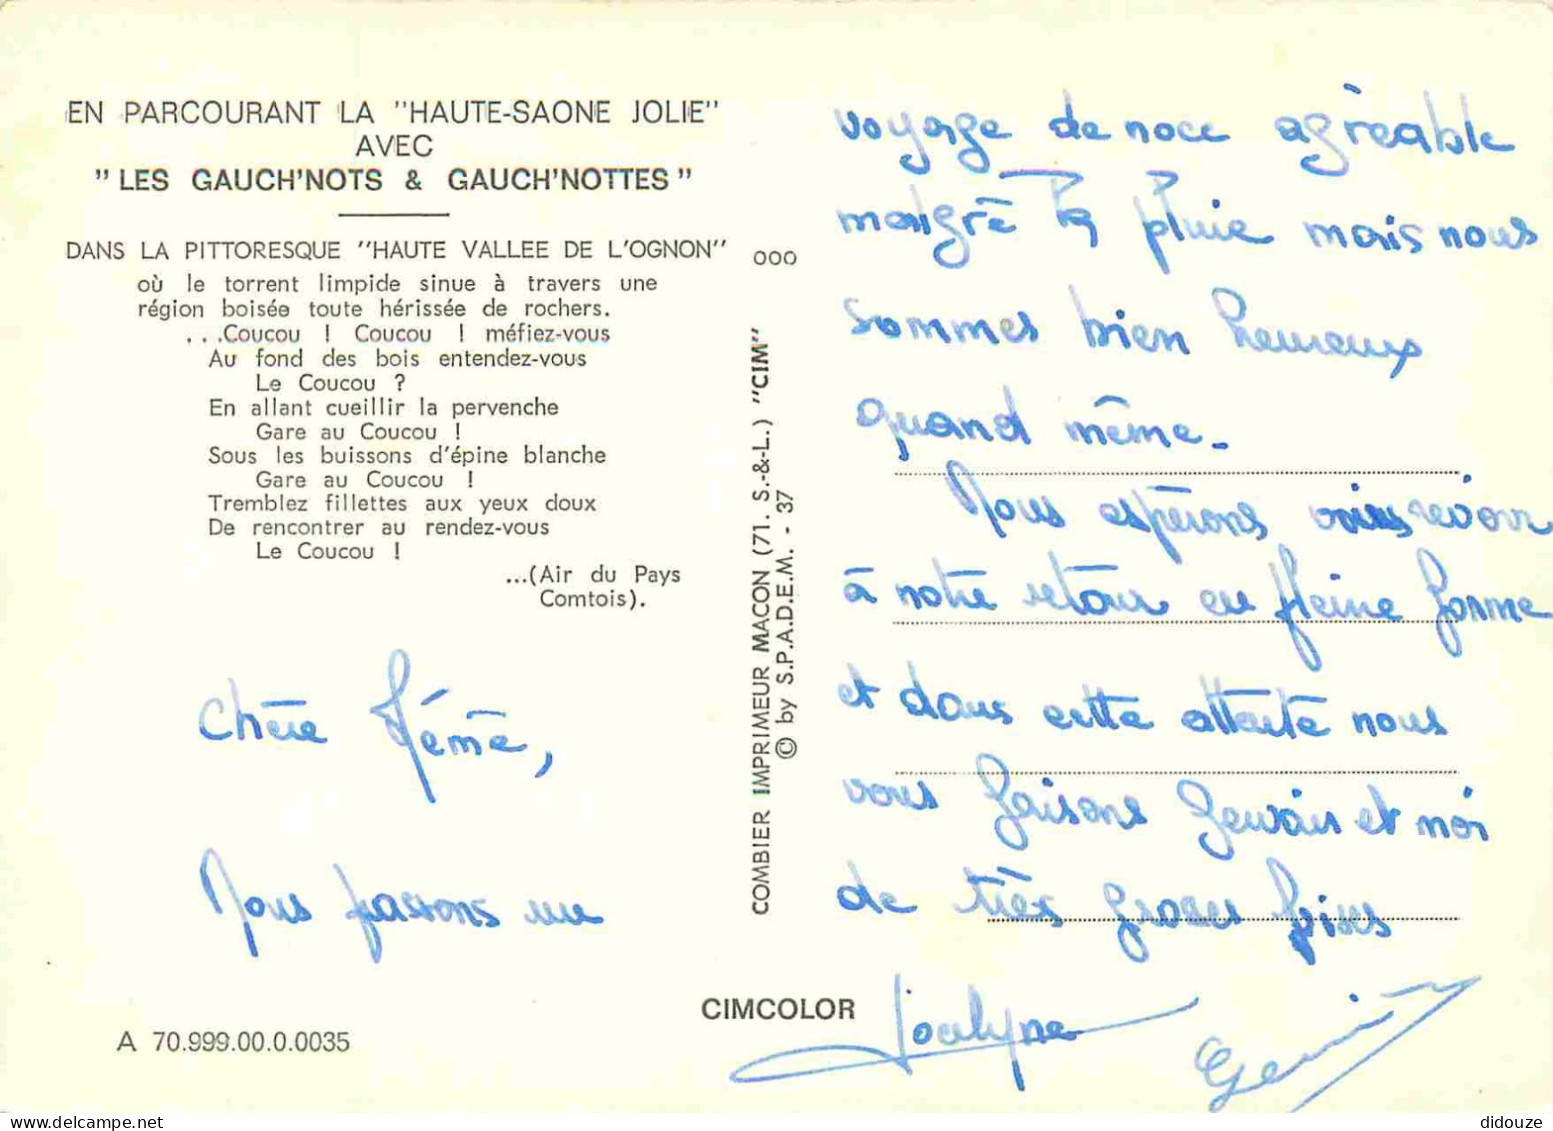 EN PARCOURANT LA "HAUTE-SAONE JOLIE"
AVEC
"LES GAUCH'NOTS & GAUCH'NOTTES"
DANS LA PITTORESQUE "HAUTE VALLEE DE L'OGNON"
où le torrent limpide sinue à travers une
région boisée toute hérissée de rochers.
...Coucou ! Coucou ! méfiez-vous
Au fond des bois entendez-vous
Le Coucou ?
En allant cueillir la pervenche
Gare au Coucou !
Sous les buissons d'épine blanche
Gare au Coucou !
Tremblez fillettes aux yeux doux
De rencontrer au rendez-vous
Le Coucou !
...(Air du Pays
Comtois).
Chère Mémé,
Nous passons un
A 70.999.00.0.0035
ooo
COMBIER IMPRIMEUR MACON (71. S.-&-L.) "CIM"
© by S.P.A.D.E.M. - 37
CIMCOLOR
voyage de noce agréable
malgré la pluie mais nous
sommes bien heureux
quand même.
Nous espérons vous revoir
à notre retour en pleine forme
et dans cette attente nous
vous faisons Gervais et moi
de très grosses bises
Jocelyne
didouze